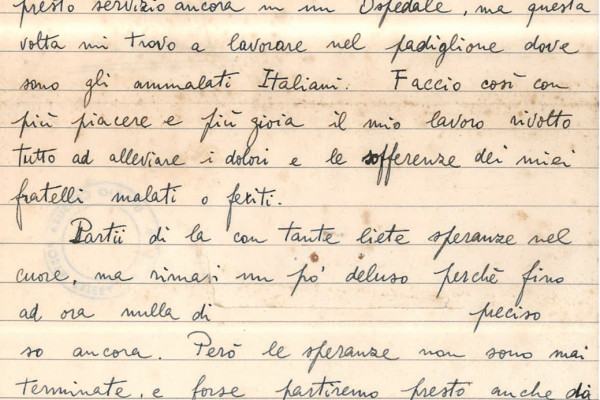 presto servizio ancora in un Ospedale, ma questa
volta mi trovo a lavorare nel padiglione dove
sono gli ammalati Italiani. Faccio così con
più piacere e più gioia il mio lavoro rivolto
tutto ad alleviare i dolori e le sofferenze dei miei
fratelli malati o feriti.
Partii di la con tante liete speranze nel
cuore, ma rimasi un po' deluso perchè fino
ad ora nulla di preciso
so ancora. Però le speranze non sono mai
terminate, e forse partiremo presto anche da